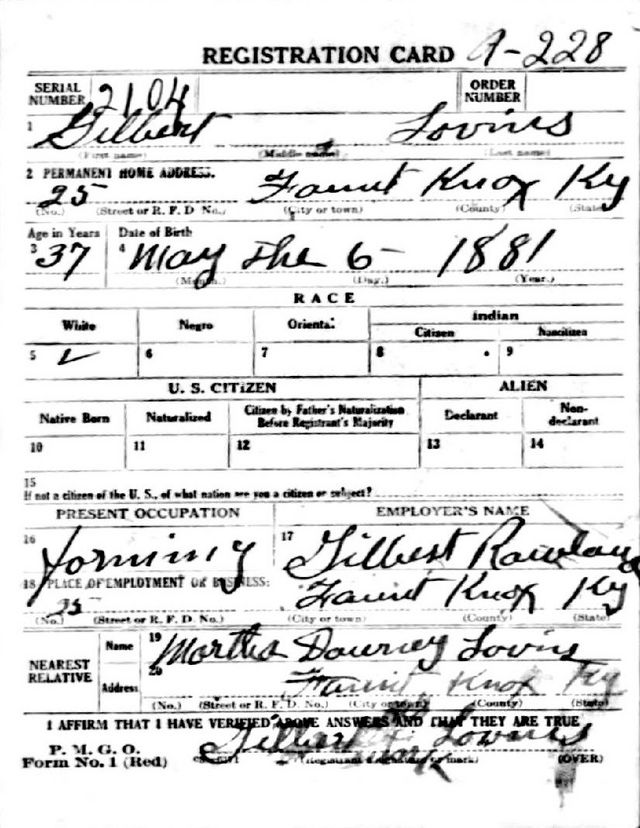 REGISTRATION CARD A-228
SERIAL NUMBER 2104 ORDER NUMBER
1 Gilbert Lovins
(First name) (Middle name) (Last name)
2 PERMANENT HOME ADDRESS.
25 Faunt Knox Ky
(No.) (Street or R. F. D No.) (City or town) (County) (State)
Age in Years Date of Birth
3 37 4 May the 6 - 1881
(Month.) (Day.) (Year.)
RACE
White Negro Oriental Indian
Citizen Noncitizen
5 ✓ 6 7 8 9
U. S. CITIZEN ALIEN
Native Born Naturalized Citizen by Father's Naturalization Before Registrant's Majority Declarant Non-declarant
10 11 12 13 14
15
If not a citizen of the U. S., of what nation are you a citizen or subject?
PRESENT OCCUPATION EMPLOYER'S NAME
16 Forming 17 Gilbert
18 PLACE OF EMPLOYMENT OR BUSINESS:
25 Faunt Knox Ky
(No.) (Street or R. F. D. No.) (City or town) (County) (State)
NEAREST RELATIVE
Name 19 Martha Downey Lovins
Address 20 Faunt Knox Ky
(No.) (Street or R. F. D. No.) (City or town) (County) (State)
I AFFIRM THAT I HAVE VERIFIED ABOVE ANSWERS AND THAT THEY ARE TRUE
P. M. G. O. Gilbert Lovins
Form No. 1 (Red) mark (Registrant's signature or mark) (OVER)